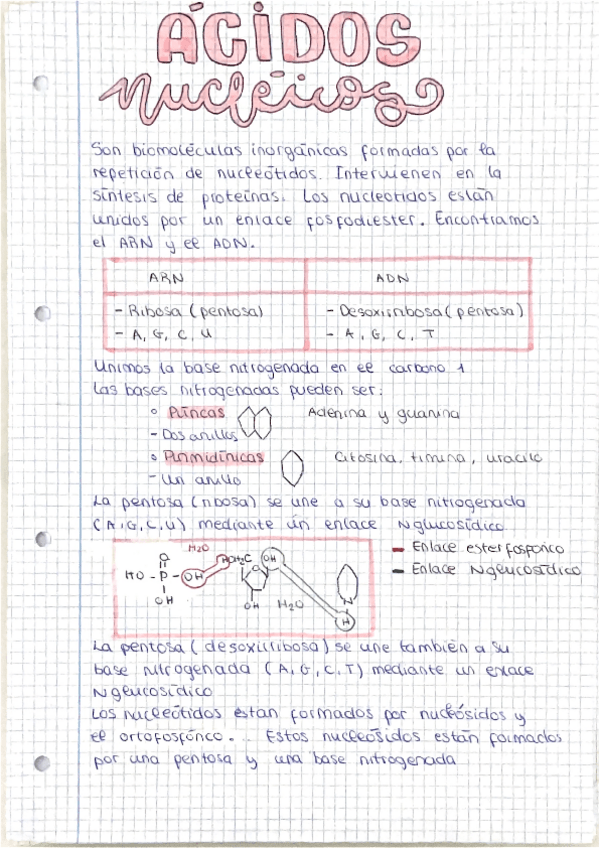 ÁCIDOS
nucléicos
Son biomoléculas inorgánicas formadas por la
repetición de nucleótidos. Intervienen en la
síntesis de proteínas. Los nucleotidos están
unidos por un enlace fosfodiester. Encontramos
el ARN y el ADN.
ARN ADN
- Ribosa (pentosa) - Desoxirribosa (pentosa)
- A, G, C, U - A, G, C, T
Unimos la base nitrogenada en el carbono 1
Las bases nitrogenadas pueden ser:
Púricas Adenina y guanina
- Dos anillos
Pirimidínicas Citosina, timina, uracilo
- Un anillo
La pentosa (ribosa) se une a su base nitrogenada
(A, G, C, U) mediante un enlace Nglucosídico
H2O
O HOH2C OH
HO - P - OH O
OH OH H2O N
H
Enlace esterfosfórico
Enlace Nglucosídico
La pentosa (desoxirribosa) se une también a su
base nitrogenada (A, G, C, T) mediante un enlace
Nglucosídico
Los nucleótidos están formados por nucleósidos y
el ortofosfórico... Estos nucleósidos están formados
por una pentosa y una base nitrogenada